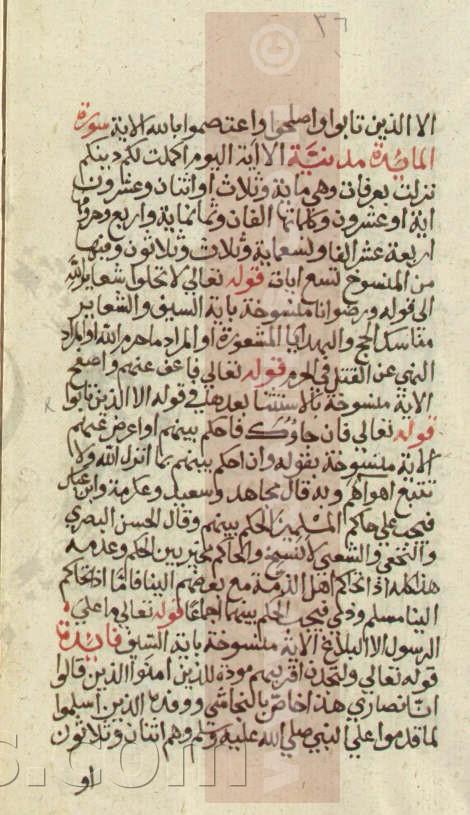 ٣٦
الا الذين تابوا واصلحوا واعتصموا بالله الاية سورة
المايدة مدنية الا اية اليوم اكملت لكم دينكم
نزلت بعرفات وهي ماية وثلاث او اثنان وعشرون
اية او عشرون وكلماتها الفان وثمانماية واربع وحروفها
اربعة عشر الفا وتسعماية وثلاث وثلاثون وفيها
من المنسوخ تسع ايات قوله تعالي لا تحلوا شعاير الله
الي قوله ورضوانا منسوخة باية السيف والشعاير
مناسك الحج والهدايا المشعرة او المراد ما حرم الله او المراد
النهي عن القتل في الحرم قوله تعالي فاعف عنهم واصفح
الاية منسوخة بالاستثنا بعدها في قوله الا الذين تابوا
قوله تعالي فان جاؤك فاحكم بينهم او اعرض عنهم
الاية منسوخة بقوله وان احكم بينهم بما انزل الله ولا
تتبع اهواهم وبه قال مجاهد وسعيد وعكرمة وابن عباس
فيجب علي حاكم المسلمين الحكم بينهم وقال الحسن البصري
والنخعي والشعبي لا نسخ والحاكم مخير بين الحكم وعدمه
هذا كله اذا تحاكم اهل الذمة مع بعضهم الينا فاما اذا تحاكم
الينا مسلم وذمي فيجب الحكم بينهما اجماعا قوله تعالي ما علي
الرسول الا البلاغ الاية منسوخة باية السيف فايدة
قوله تعالي ولتجدن اقربهم مودة للذين امنوا الذين قالوا
انا نصاري هذا خاص بالنجاشي ووفده الذين اسلموا
لما قدموا علي النبي صلي الله عليه وسلم وهم اثنان وثلاثون
او
s.com